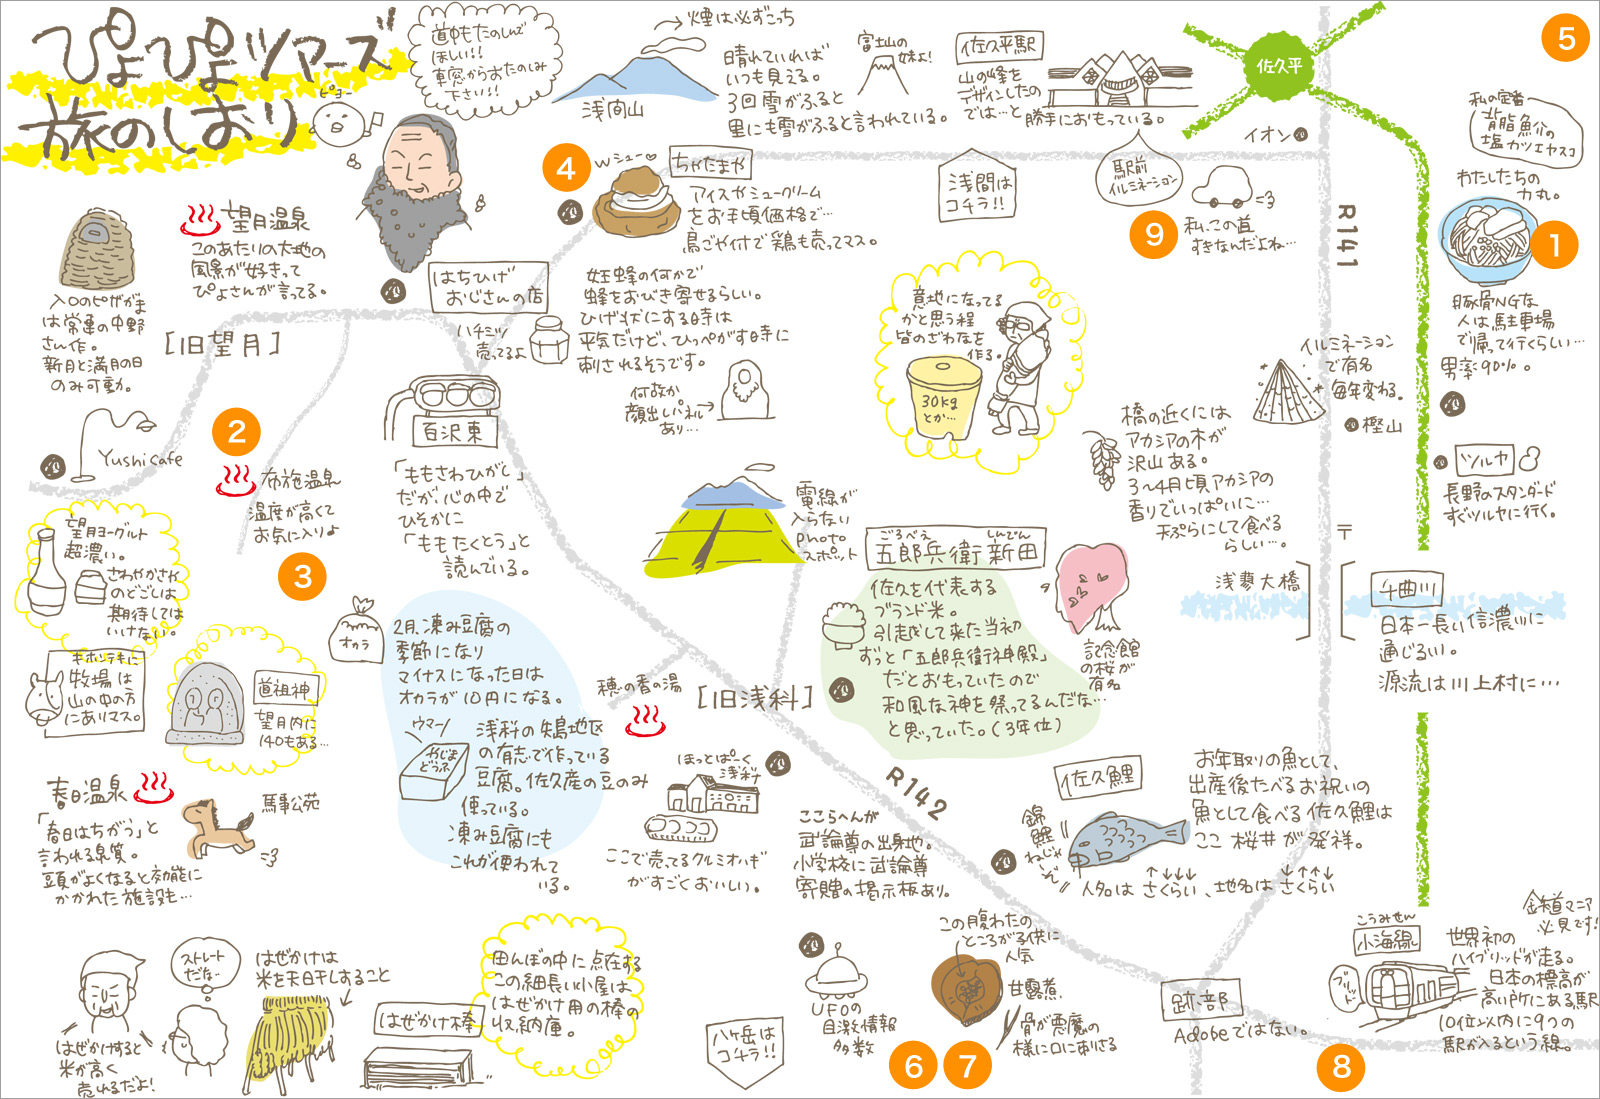 ぴよぴよツアーズ
旅のしおり
ピヨー
道中もたのしんで
ほしい!!
車窓からおたのしみ
下さい!!
煙は必ずこっち
浅間山
晴れていれば
いつも見える。
3回雪がふると
里にも雪がふると言われている。
富士山の
妹よ!
佐久平駅
山の峰を
デザインしたの
では…と
勝手におもっている。
佐久平
イオン
5
私の定番
背脂魚介の
塩カツエヤスコ
わたしたちの
力丸。
1
豚骨NGな
人は駐車場
で帰って行くらしい…
男率90%。
4
Wシュー
ちゃたまや
アイスやシュークリーム
をお手頃価格で…
鳥ごや付で鶏も売ってマス。
浅間は
コチラ!!
駅前
イルミネーション
9
私、この道
すきなんだよね…
R141
望月温泉
このあたりの大地の
風景が好きって
ぴよさんが言ってる。
入口のピザがま
は常連の中野
さん作。
新月と満月の日
のみ可動。
[旧望月]
はちひげ
おじさんの店
ハチミツ
売ってるよ
妊蜂の何かで
蜂をおびき寄せるらしい。
ひげ状にする時は
平気だけど、ひっぺがす時に
刺されるそうです。
何故か
顔出しパネル
あり…
意地になってる
かと思う程
皆のざわなを
作る。
30kg
とか…
イルミネーション
で有名
毎年変わる。
樫山
ツルヤ
長野のスタンダード
すぐツルヤに行く。
Yushi cafe
2
布施温泉
温度が高くて
お気に入りよ
3
百沢東
「ももさわひがし」
だが、心の中で
ひそかに
「ももたくとう」と
読んでいる。
電線が
入らない
photo
スポット
橋の近くには
アカシアの木が
沢山ある。
3~4月頃アカシアの
香りでいっぱいに…
天ぷらにして食べる
らしい…。
〒
浅蓼大橋
千曲川
日本一長い信濃川に
通じる川。
源流は川上村に…
望月ヨーグルト
超濃い。
さわやかさや
のどごしは
期待しては
いけない。
キホンテキに
牧場は
山の中の方
にありマス。
道祖神
望月内に
140もある…
オカラ
2月、凍み豆腐の
季節になり
マイナスになった日は
オカラが10円になる。
ウマーン
やじま
どうふ
浅科の矢嶋地区
の有志で作っている
豆腐。佐久産の豆のみ
使っている。
凍み豆腐にも
これが使われて
いる。
穂の香の湯
[旧浅科]
ごろべえ
しんでん
五郎兵衛新田
佐久を代表する
ブランド米。
引越して来た当初
ずっと「五郎兵衛神殿」
だとおもっていたので
和風な神を祭ってるんだな…
と思っていた。(3年位)
記念館
の桜が
有名
春日温泉
「春日はちがう」と
言われる泉質。
頭がよくなると効能に
かかれた施設も…
馬事公苑
ほっとぱーく
浅科
ここで売ってるクルミオハギ
がすごくおいしい。
R142
ここらへんが
武論尊の出身地。
小学校に武論尊
寄贈の掲示板あり。
佐久鯉
錦鯉
ねじゃ
ーぞ
お年取りの魚として、
出産後たべるお祝いの
魚として食べる佐久鯉は
ここ 桜井が発祥。
人名は さくらい、地名は さくらい
ストレート
だな…
はぜかけは
米を天日干しすること
はぜかけすると
米が高く
売れるだよ!
はぜかけ棒
田んぼの中に点在する
この細長い小屋は
はぜかけ用の棒の
収納庫。
八ヶ岳は
コチラ!!
UFOの
目激情報
多数
この腹わたの
ところが子供に
人気
甘露煮
骨が悪魔の
様に口にささる
6
7
跡部
Adobeではない。
8
鉄道マニア
必見です!
こうみせん
小海線
ブルッド
世界初の
ハイブリッドが走る。
日本の標高が
高い所にある駅
10位以内に9つの
駅が入るという線。